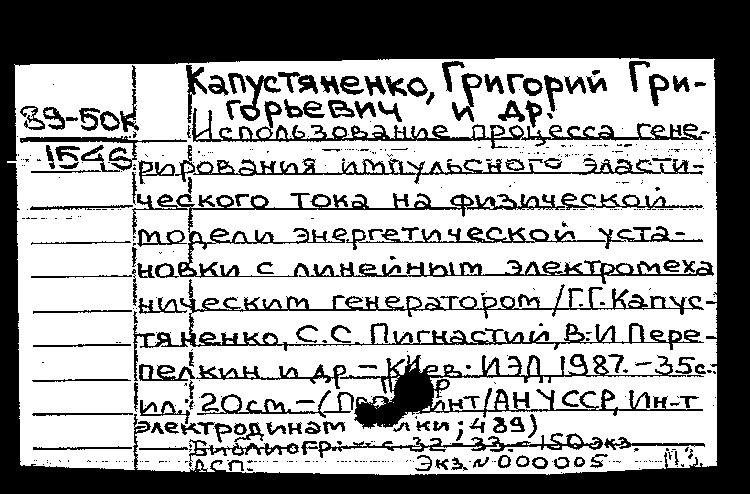 Капустяненко, Григорий Гри-
горьевич и др.
89-50к
Использование процесса гене-
1546
рирования импульсного эласти-
ческого тока на физической
модели энергетической уста-
новки с линейным электромеха
ническим генератором /Г.Г. Капус-
тяненко, С.С. Пигнастий, В.И Пере-
пелкин и др. - Киев: ИЭД, 1987. - 35 с.:
ил.; 20 cm. - (АН УССР, Ин-т
электродинам ; 489)
Библиогр.: с 32-33. - 150 экз.
ДСП. Экз. N 000005 М.З.